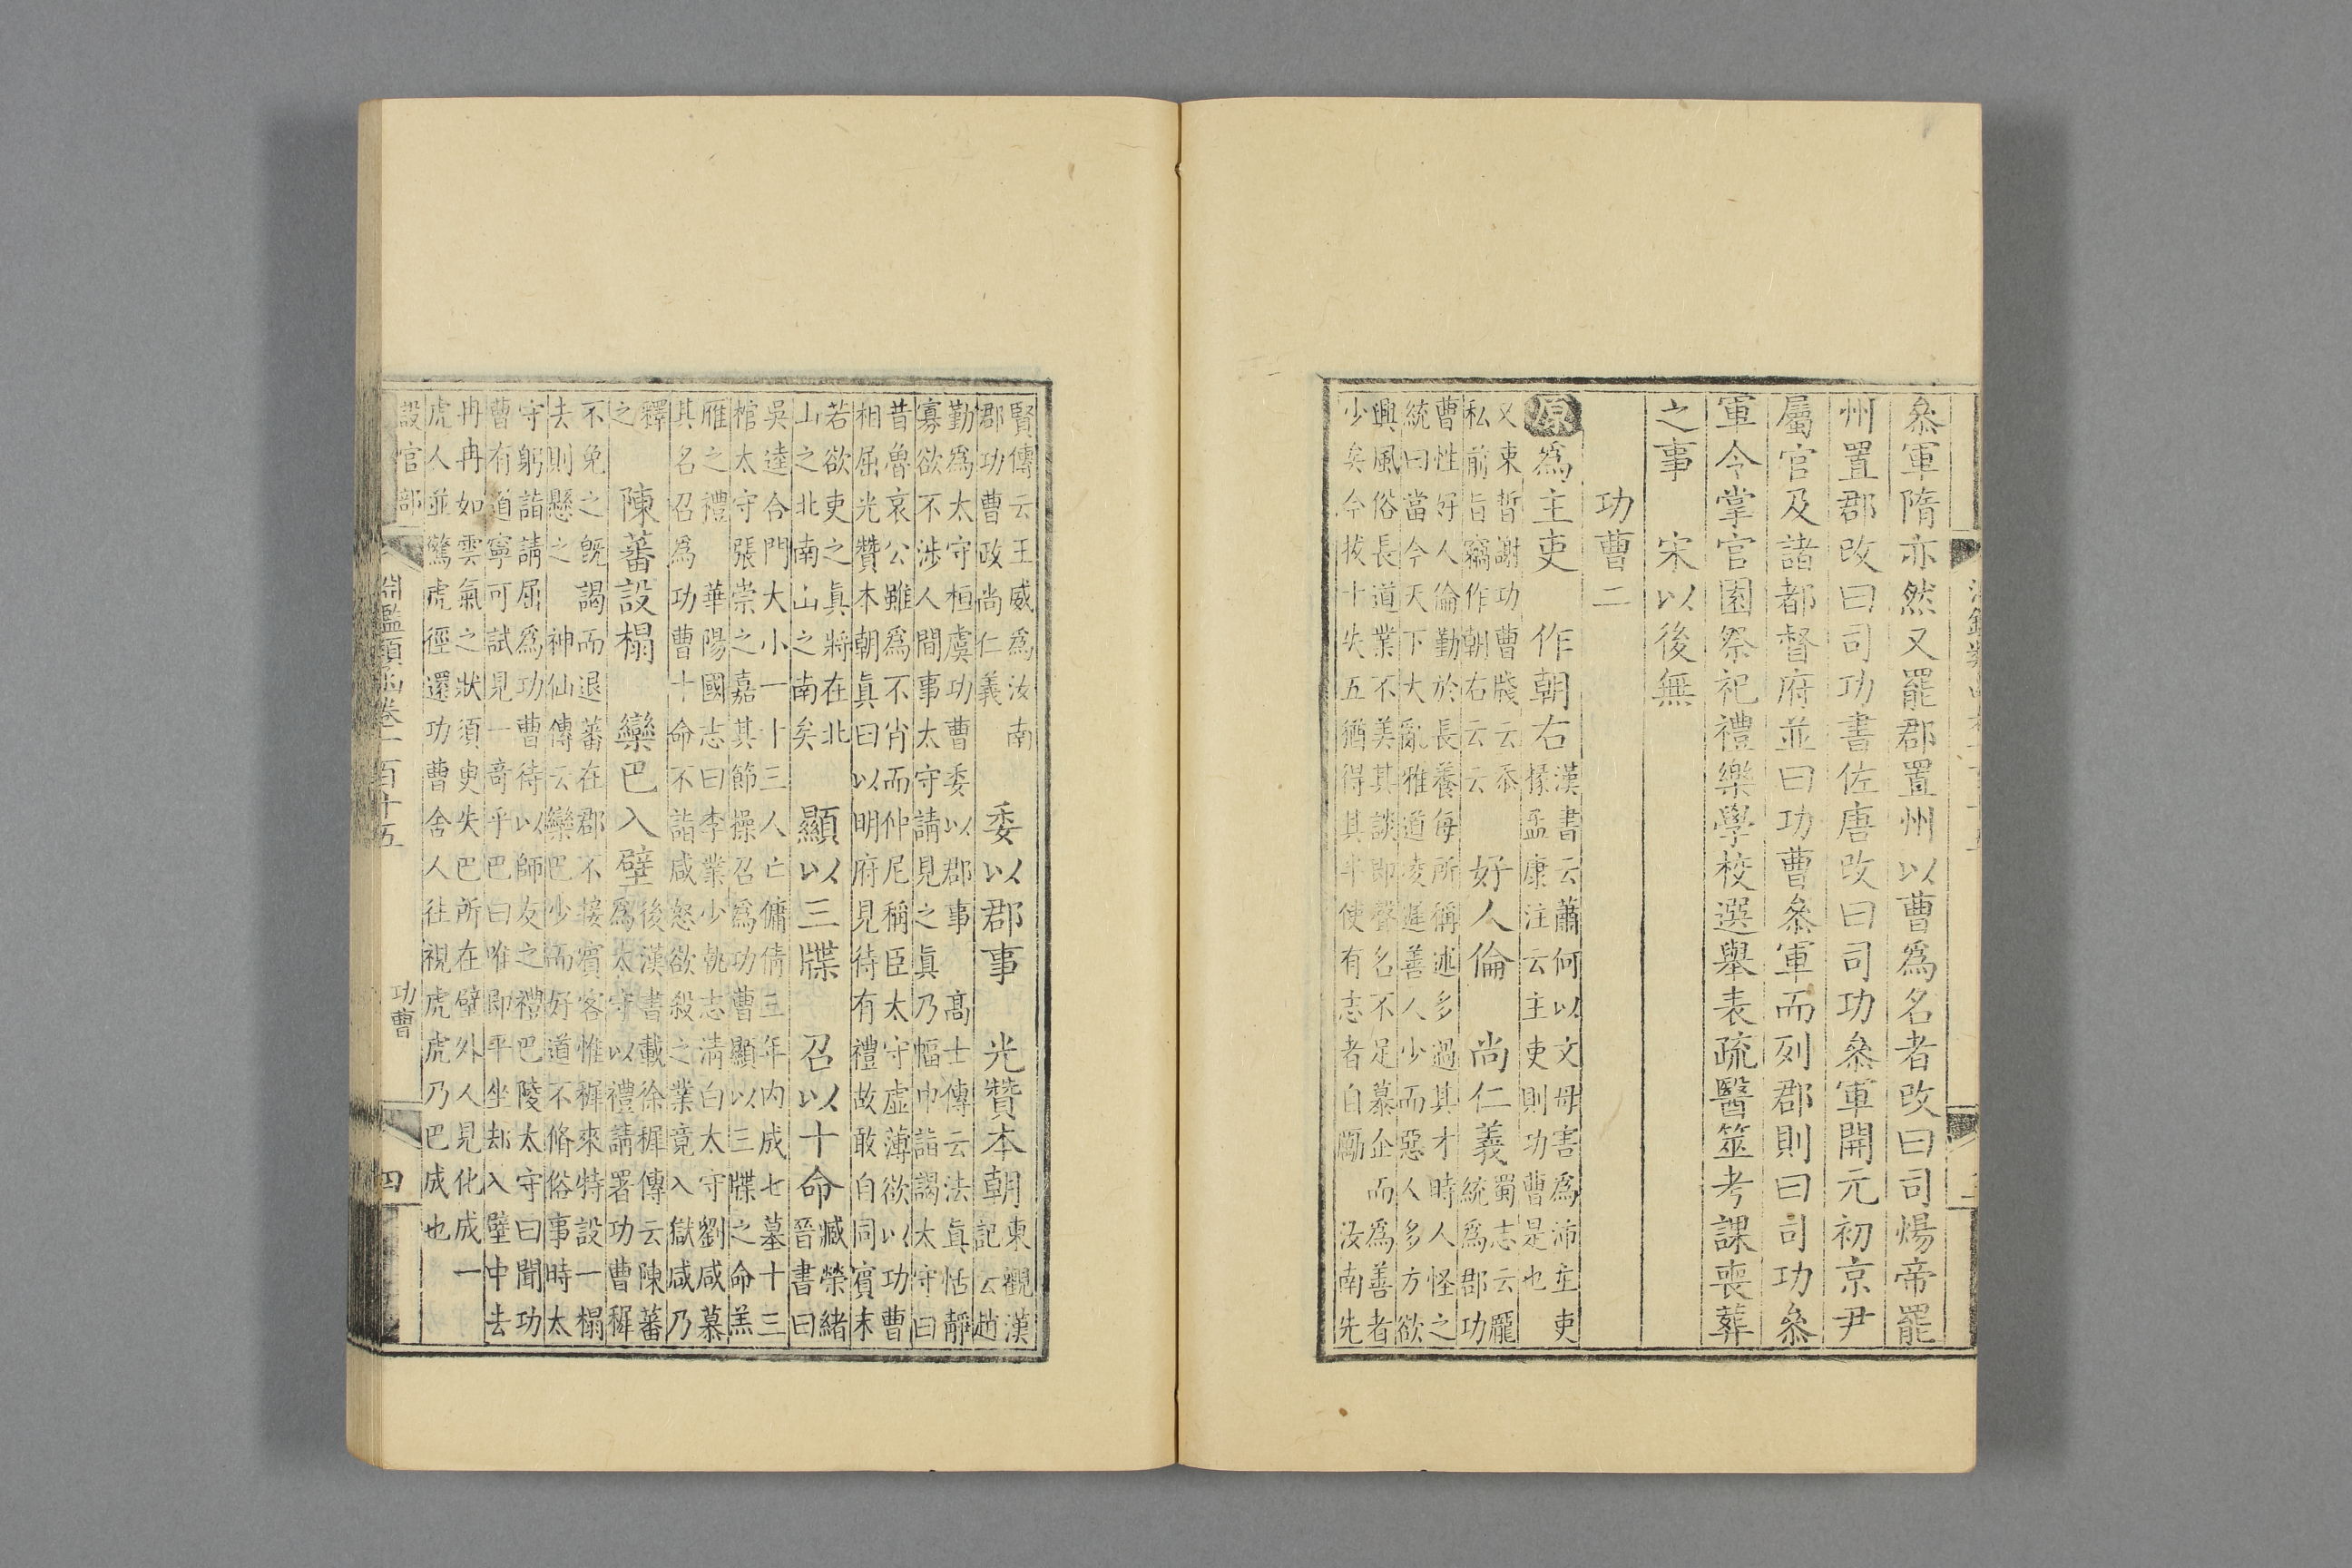 叅軍隋亦然又罷郡置州以曹爲名者改曰司煬帝罷
州置郡改曰司功書佐唐改曰司功叅軍開元初京尹
屬官及諸都督府並曰功曹叅軍而列郡則曰司功叅
軍令掌官園祭祀禮樂學校選舉表疏醫筮考課喪葬
之事 宋以後無
功曹二
原爲主吏 作朝右 漢書云蕭何以文毋害爲沛主吏
掾孟康注云主吏則功曹是也
又束晳謝功曹牋云忝
私前旨竊作朝右云云 好人倫 尚仁義 蜀志云龐
統爲郡功
曹性好人倫勤於長養每所稱述多過其才時人怪之
統曰當今天下大亂雅道凌遲善人少而惡人多方欲
興風俗長道業不美其談即聲名不足慕企而爲善者
少矣今拔十失五猶得其半使有志者自勵 汝南先
賢傳云王威爲汝南
郡功曹政尚仁義 委以郡事 光贊本朝 東觀漢
記云趙
勤爲太守桓虞功曹委以郡事 高士傳云法眞恬靜
寡欲不涉人間事太守請見之眞乃幅巾詣謁太守曰
昔魯哀公雖爲不肖而仲尼稱臣太守虛薄欲以功曹
相屈光贊本朝眞曰以明府見待有禮故敢自同賓末
若欲吏之眞將在北
山之北南山之南矣 顯以三牒 召以十命 臧榮緒
晉書曰
吳逵合門大小一十三人亡傭倩三年內成七墓十三
棺太守張崇之嘉其節操召爲功曹顯以三牒之命羔
雁之禮 華陽國志曰李業少執志清白太守劉咸慕
其名召爲功曹十命不詣咸怒欲殺之業竟入獄咸乃
釋
之 陳蕃設榻 欒巴入壁 後漢書載徐穉傳云陳蕃
爲太守以禮請署功曹穉
不免之旣謁而退蕃在郡不接賓客惟穉來特設一榻
去則懸之 神仙傳云欒巴少而好道不脩俗事時太
守躬詣請屈爲功曹待以師友之禮巴陵太守曰聞功
曹有道寧可試見一奇乎巴曰唯即平坐却入壁中去
冉冉如雲氣之狀須臾失巴所在壁外人見化成一
虎人並驚虎徑還功曹舍人往視虎虎乃巴成也
設官部 淵鑑類函卷一百十五 功曹 四